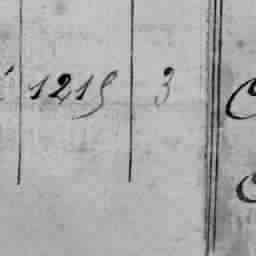 1215 3